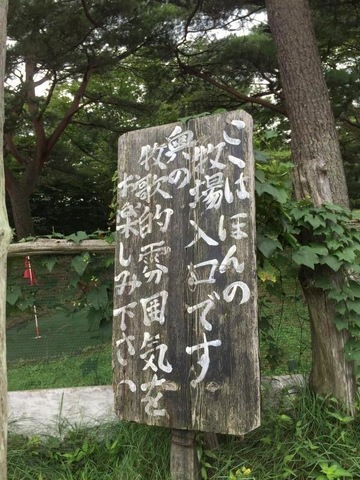 ここはほんの
牧場入口です
奥の
牧歌的雰囲気を
お楽しみ下さい